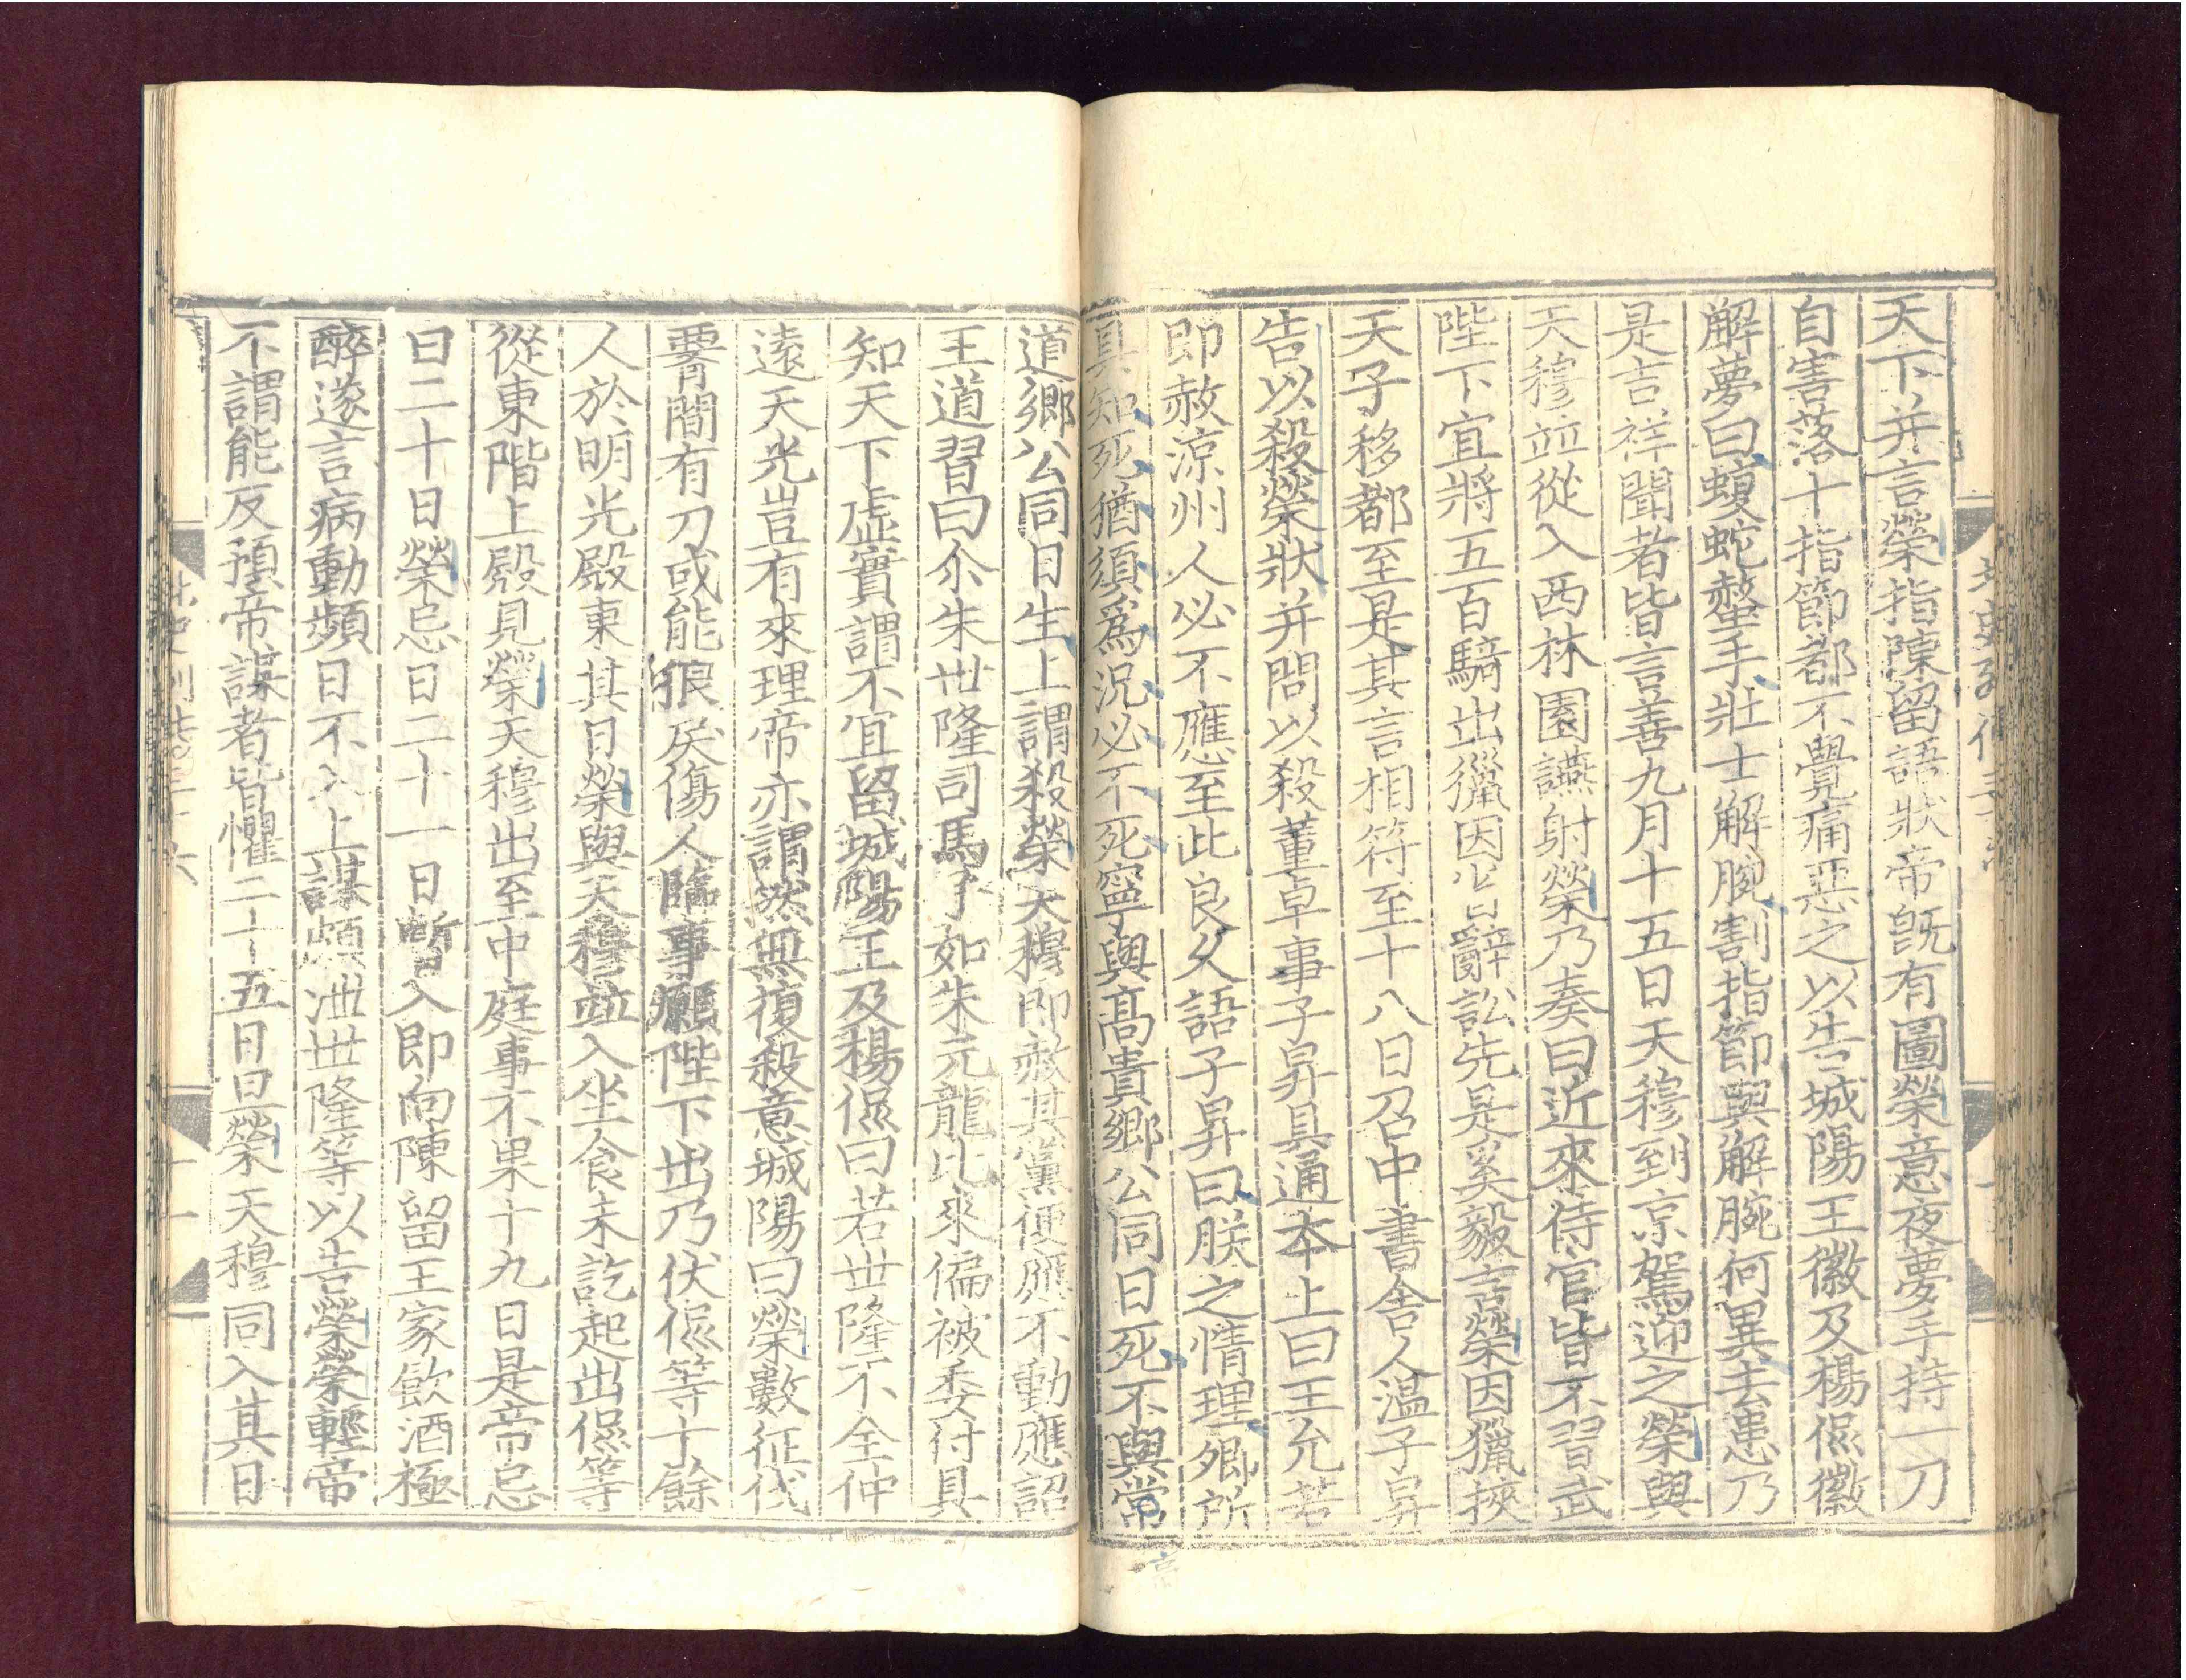 天下并言榮指陳留語狀帝旣有圖榮意夜夢手持一刀
自害落十指節都不覺痛惡之以告城陽王徽及楊侃徽
解夢曰蝮蛇螫手壯士解腕割指節與解腕何異去患乃
是吉祥聞者皆言善九月十五日天穆到京駕迎之榮與
天穆竝從入西林園讌射榮乃奏曰近來侍官皆不習武
陛下宜將五百騎出獵因省辭訟先是奚毅言榮因獵挾
天子移都至是其言相符至十八日召中書舍人温子昇
告以殺榮狀并問以殺董卓事子昇具通夲上曰王允若
即赦涼州人必不應至此良久語子昇曰朕之情理卿所
具知死猶須爲況必不死寧與高貴鄉公同日死不與常
道鄉公同日生上謂殺榮天穆即赦其黨便應不動應詔
王道習曰尒朱世隆司馬子如朱元龍比來偏被委付具
知天下虛實謂不宜留城陽王及楊侃曰若世隆不全仲
遠天光豈有來理帝亦謂然無復殺意城陽曰榮數征伐
署間有刀或能狼戾傷人臨事願陛下出乃伏侃等十餘
人於明光殿東其日榮與天穆竝入坐食未訖起出侃等
從東階上殿見榮天穆出至中庭事不果十九日是帝忌
日二十日榮忌日二十一日暫入即向陳留王家飲酒極
醉遂言病動頻日不入上謀頗泄世隆等以告榮榮輕帝
不謂能反預帝謀者皆懼二十五日旦榮天穆同入其日